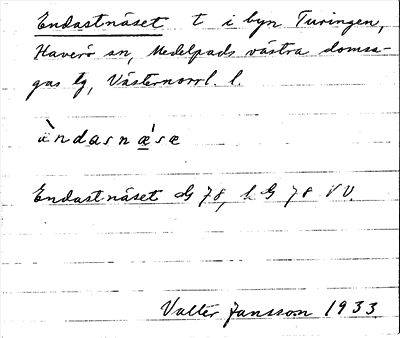 Endastnäset t i byn Turingen,
Haverö sn, Medelpads västra domsa-
gas tg, Västernorrl. l.
ändasnæ'sæ
Endastnäset G 78, G 78 V V.
Valter Jansson 1933